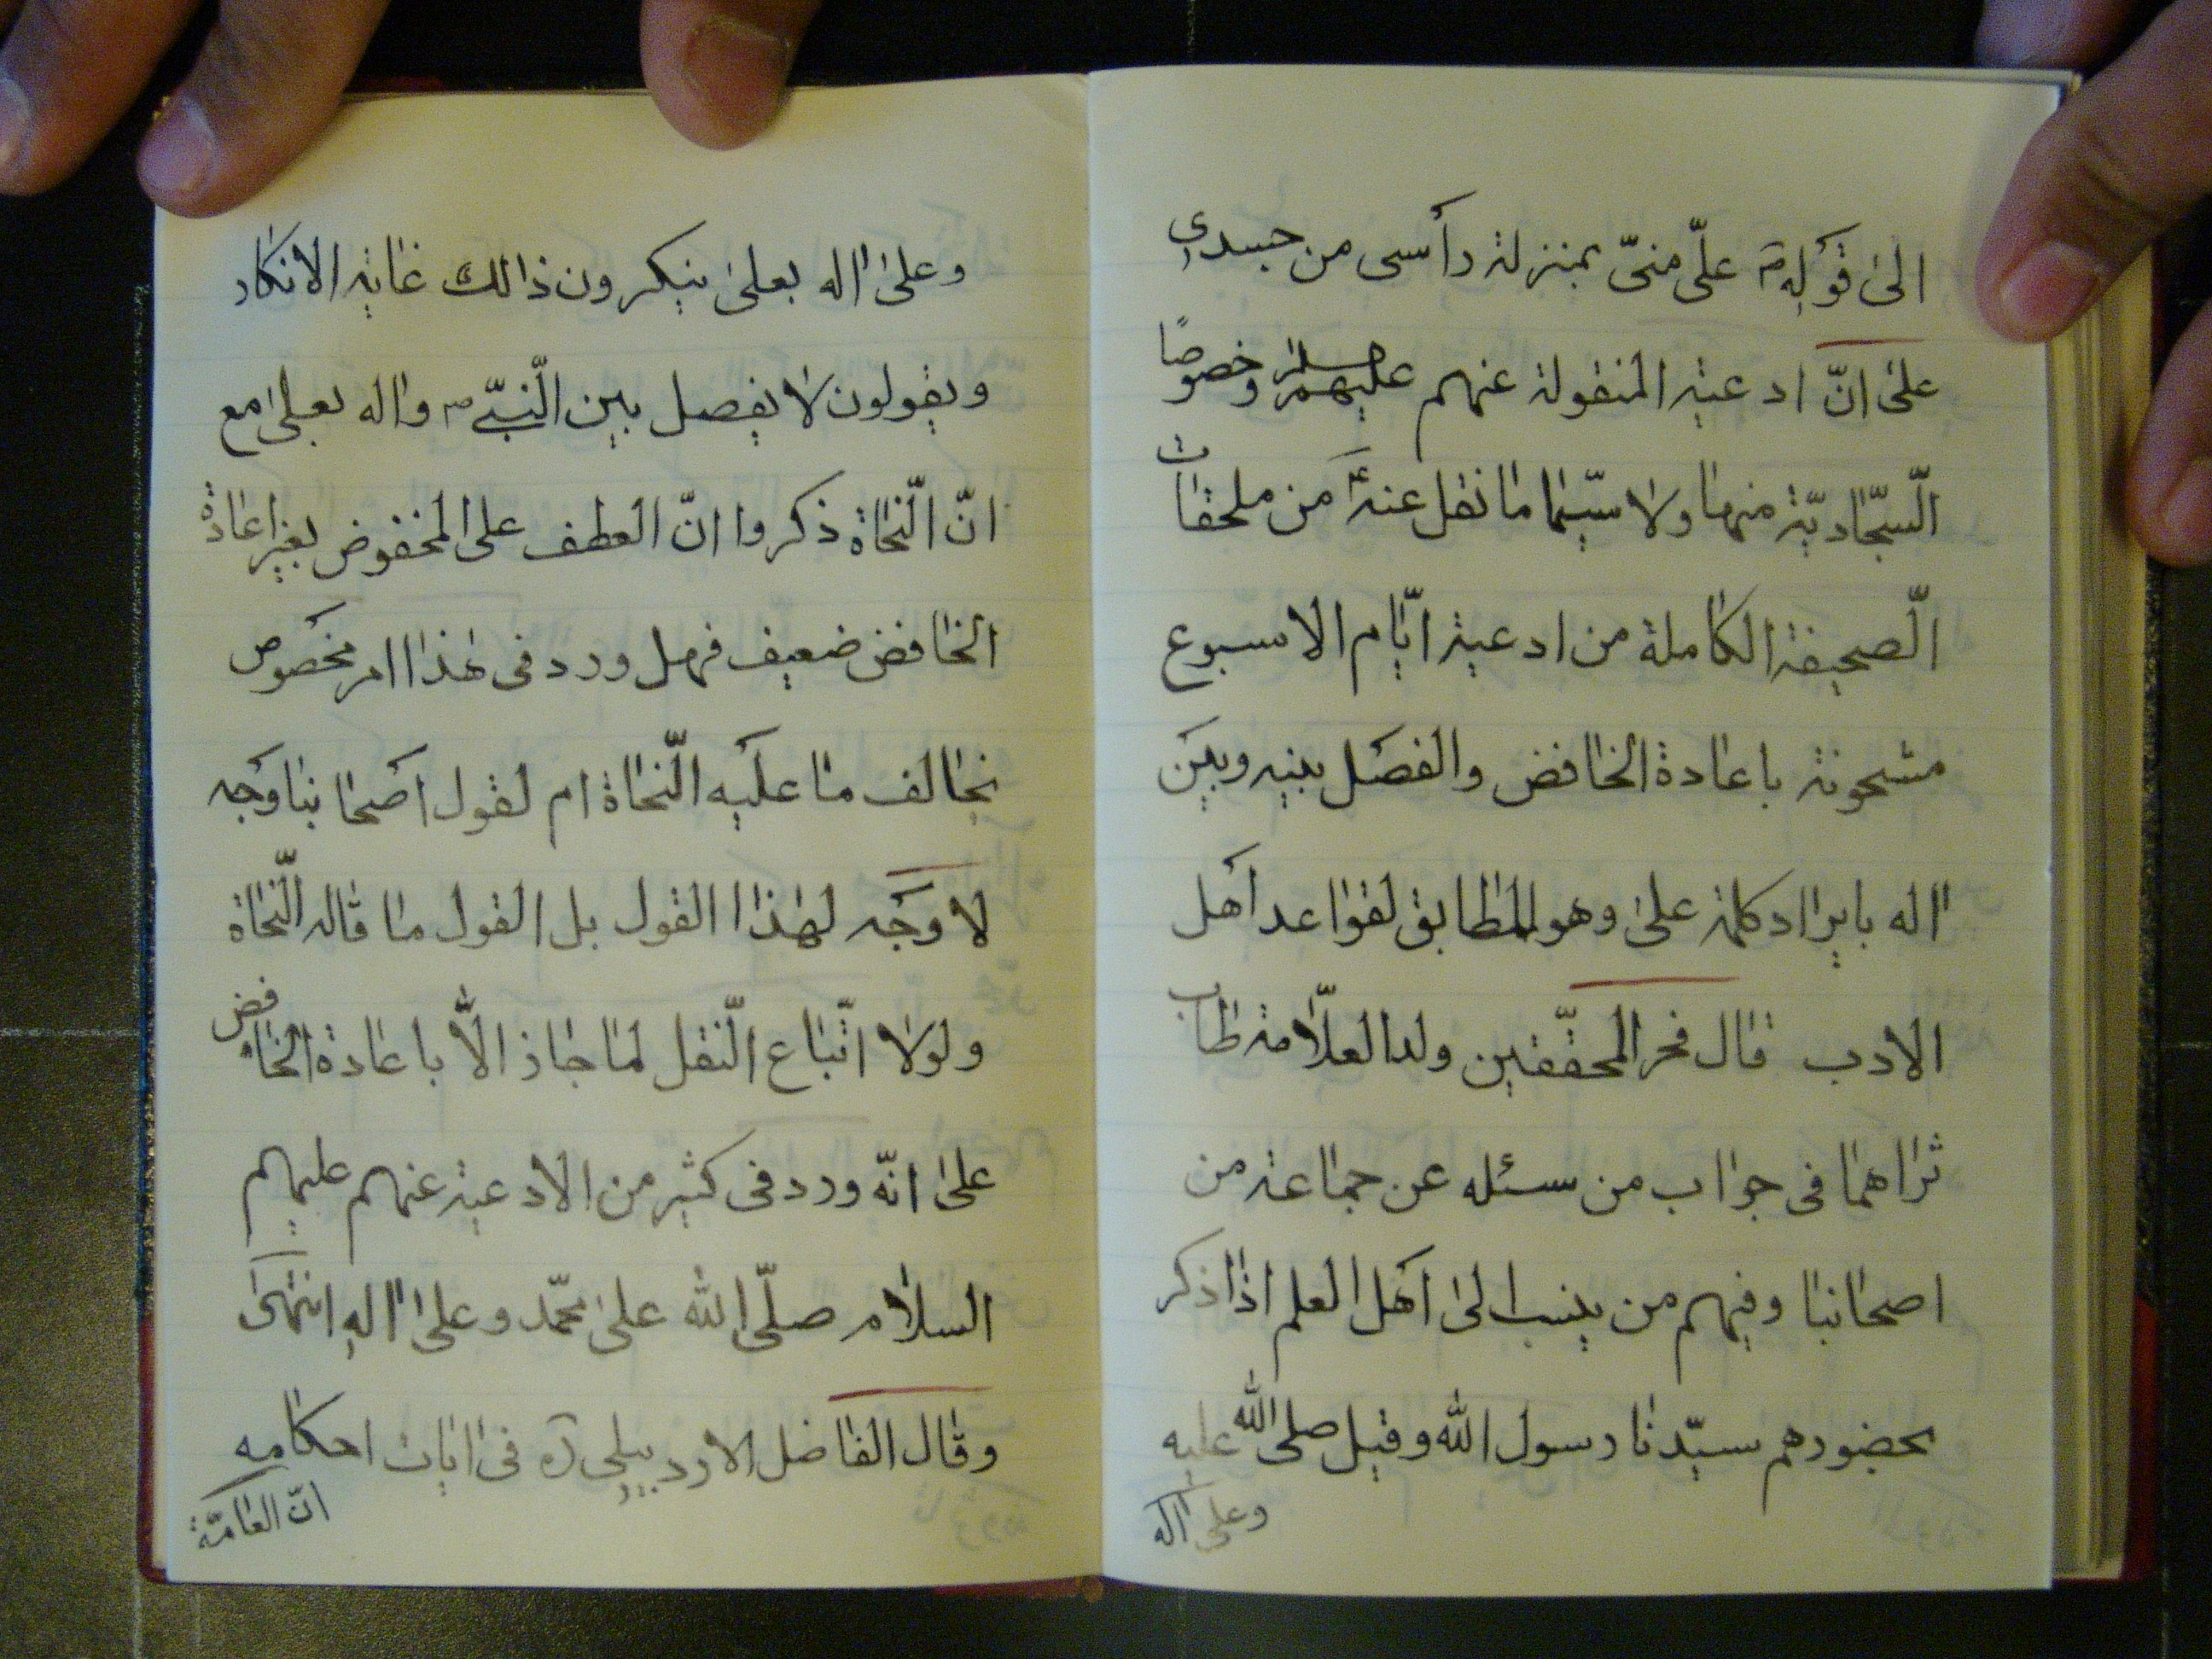 الىٰ قوله ص علىّ منىّ بمنزلة رأسى من جسدى
علىٰ انّ ادعية المنقولة عنهم عليهم السلام وخصوصًا
السّجّاديّة منها ولا سيّما ما نقل عنهٌ من ملحقات
الصّحيفة الكاملة من ادعية ايّام الاسبوع
مشحونة باعادة الخافض والفصل بينه وبين
اٰله بايراد كلمة علىٰ وهو المطابق لقواعد اهل
الادب قال فخر المحقّقين ولد العلّامة طاب
ثراهما فى جواب من سئله عن جماعة من
اصحابنا وفيهم من ينسب الىٰ اهل العلم اذا ذكر
بحضورهم سيّدنا رسول الله وقيل صلى الله عليه
وعلى آله
وعلىٰ اٰله بعلىٰ ينكرون ذالك غاية الانكار
ويقولون لا يفصل بين النّبىّ ص واٰله بعلىٰ مع
انّ النّحاة ذكروا انّ العطف على المخفوض بغير اعادة
الخافض ضعيف فهل ورد فى هٰذا امر مخصوص
يخالف ما عليه النّحاة ام لقول اصحابنا وجه
لا وجه لهٰذا القول بل القول ما قاله النّحاة
ولولا اتّباع النّقل لما جاز الاّ باعادة الخافض
علىٰ انّه ورد فى كثير من الادعية عنهم عليهم
السلام صلّى الله علىٰ محمّد وعلىٰ اٰله انتهىٰ
وقال الفاضل الاردبيلى ره فى اٰيات احكامه
انّ العامّة